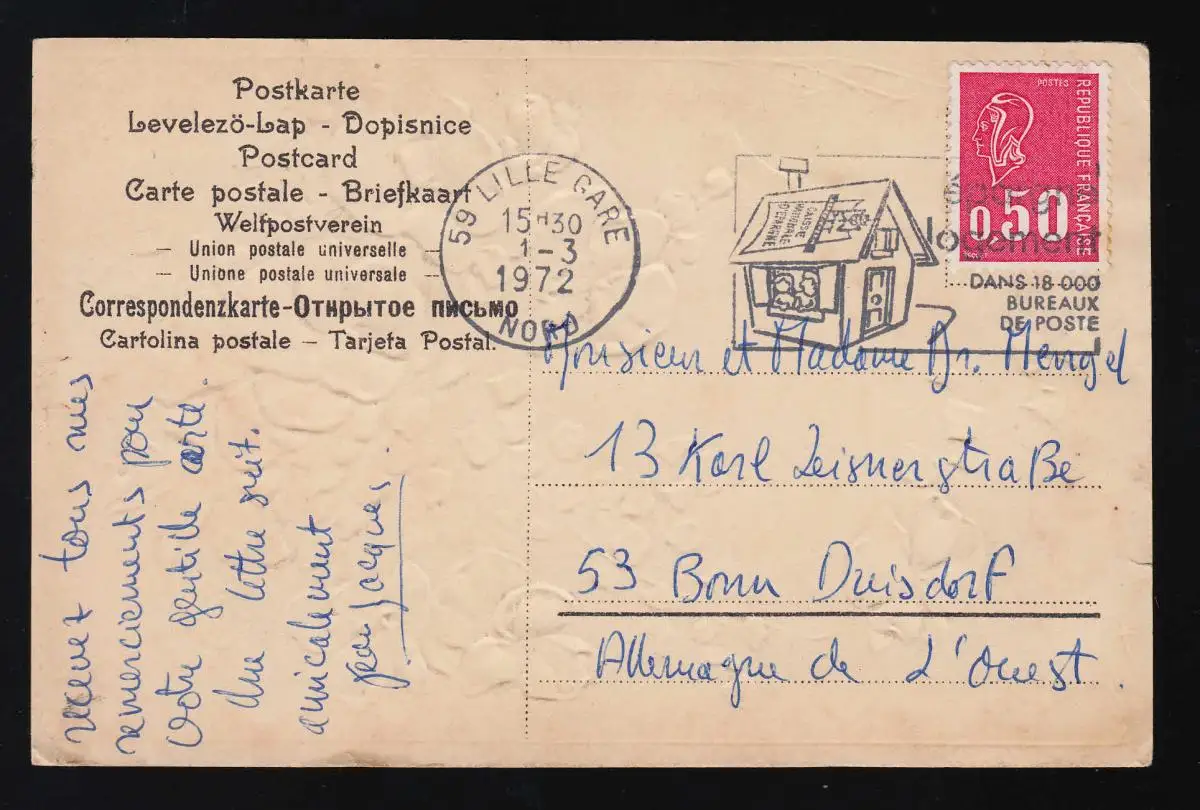 Postkarte
Levelezö-Lap - Dopisnice
Postcard
Carte postale - Briefkaart
Weltpostverein
— Union postale universelle
— Unione postale universale —
Correspondenzkarte-Открытое письмо
Cartolina postale — Tarjeta Postal.
59 LILLE GARE
15H30
1-3
1972
NORD
CAISSE
NATIONALE
D'EPARGNE
épargne
logement
DANS 18 000
BUREAUX
DE POSTE
POSTES
REPUBLIQUE FRANÇAISE
0,50
recevez tous mes
remerciements pour
votre gentille carte.
Une lettre suit.
amicalement
Jacques
Monsieur et Madame Dr. Mengel
13 Karl Leisnerstraße
53 Bonn Duisdorf
Allemagne de l'Ouest.